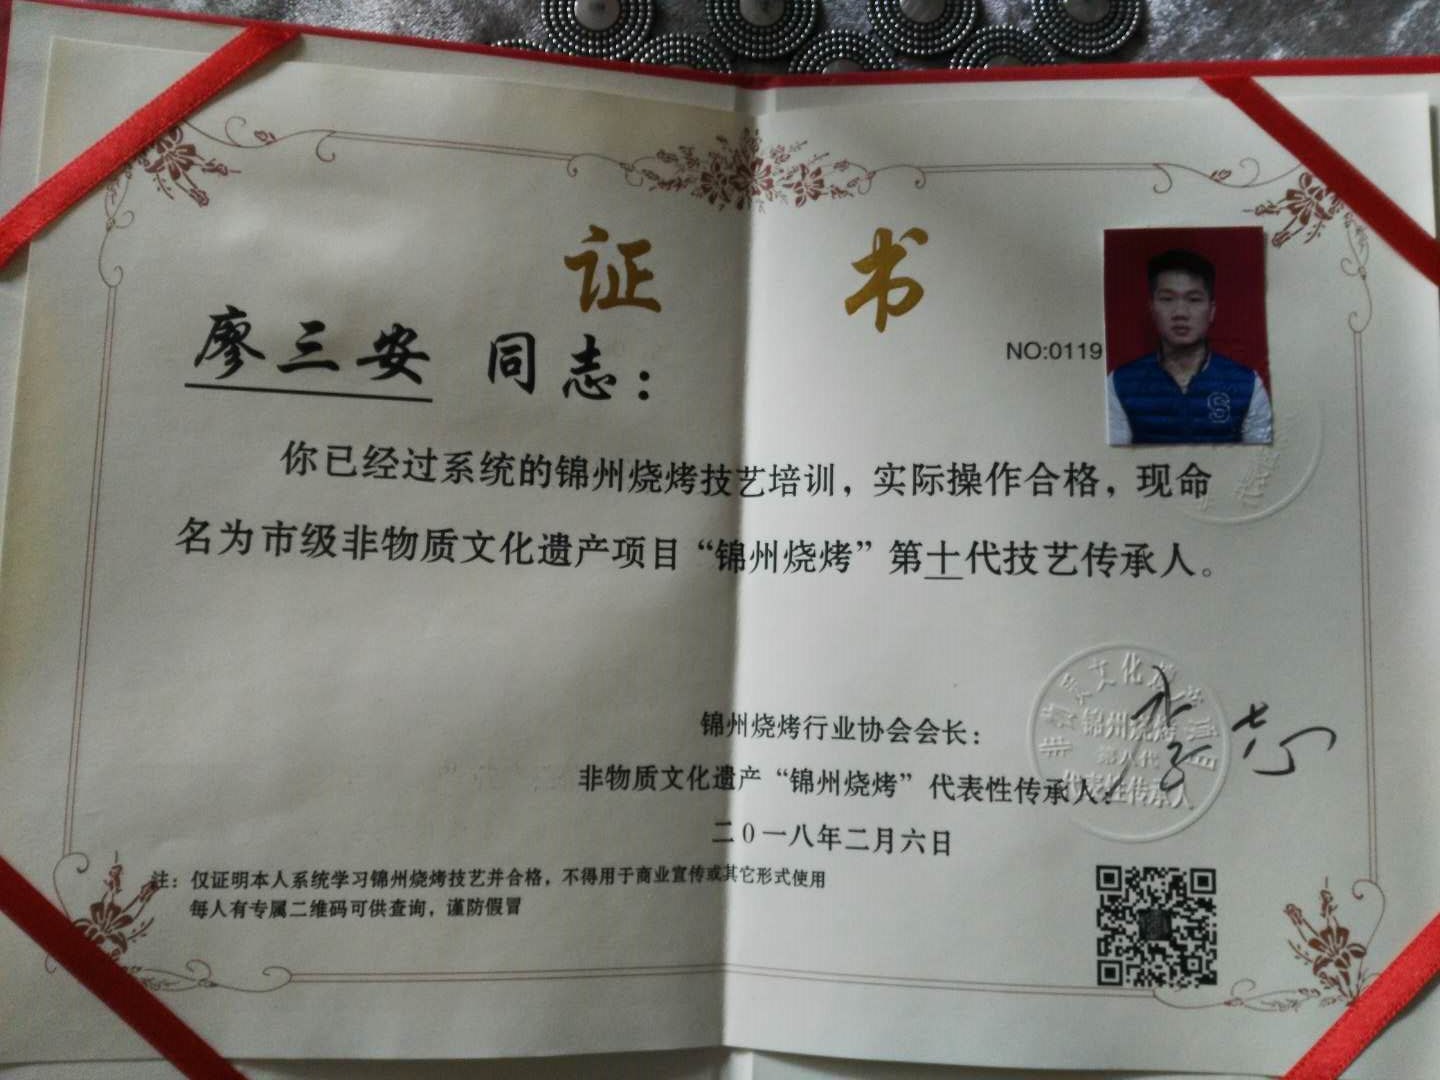 证 书
NO:0119
廖三安 同志：
你已经过系统的锦州烧烤技艺培训，实际操作合格，现命
名为市级非物质文化遗产项目“锦州烧烤”第十代技艺传承人。
锦州烧烤行业协会会长：
非物质文化遗产“锦州烧烤”代表性传承人：
二0一八年二月六日
锦州烧烤
第八代
代表性传承人
注：仅证明本人系统学习锦州烧烤技艺并合格，不得用于商业宣传或其它形式使用
每人有专属二维码可供查询，谨防假冒
S